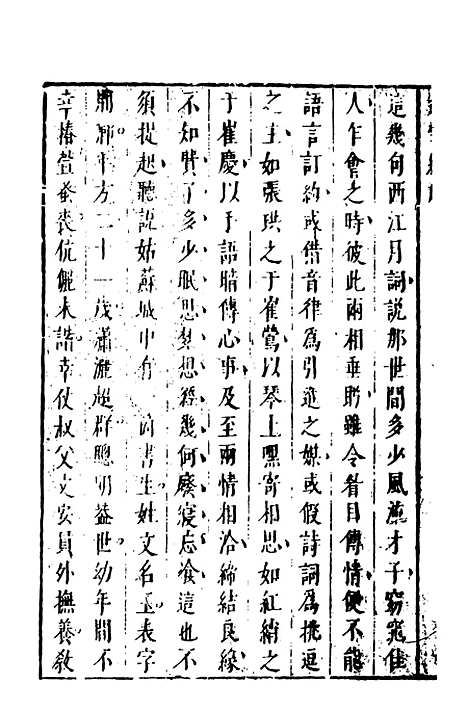 這幾句西江月詞說那世間多少風流才子窈窕佳
人乍會之時彼此兩相垂盼雖令眉目傳情便不能
語言訂約或借音律為引進之媒或假詩詞為挑逗
之主如張珙之于崔鶯以琴上嘿寄相思如紅綃之
于崔慶以手語暗傳心事及至兩情相洽締結良緣
不知費了多少眠思夢想算幾何廢寢忘餐這也不
須提起聽說姑蘇城中有 書生姓文名玉表字
年方二十一歲瀟灑超群聰明益世幼年間不
幸椿萱蚤喪伉儷未諧幸仗叔父文安員外撫養教